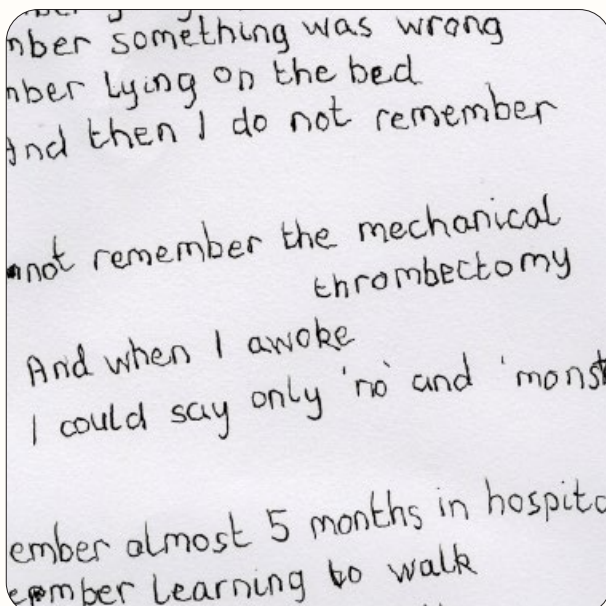 something was wrong
lying on the bed
And then I do not remember
remember the mechanical
thrombectomy
And when I awoke
I could say only 'no' and 'monst
almost 5 months in
learning to walk